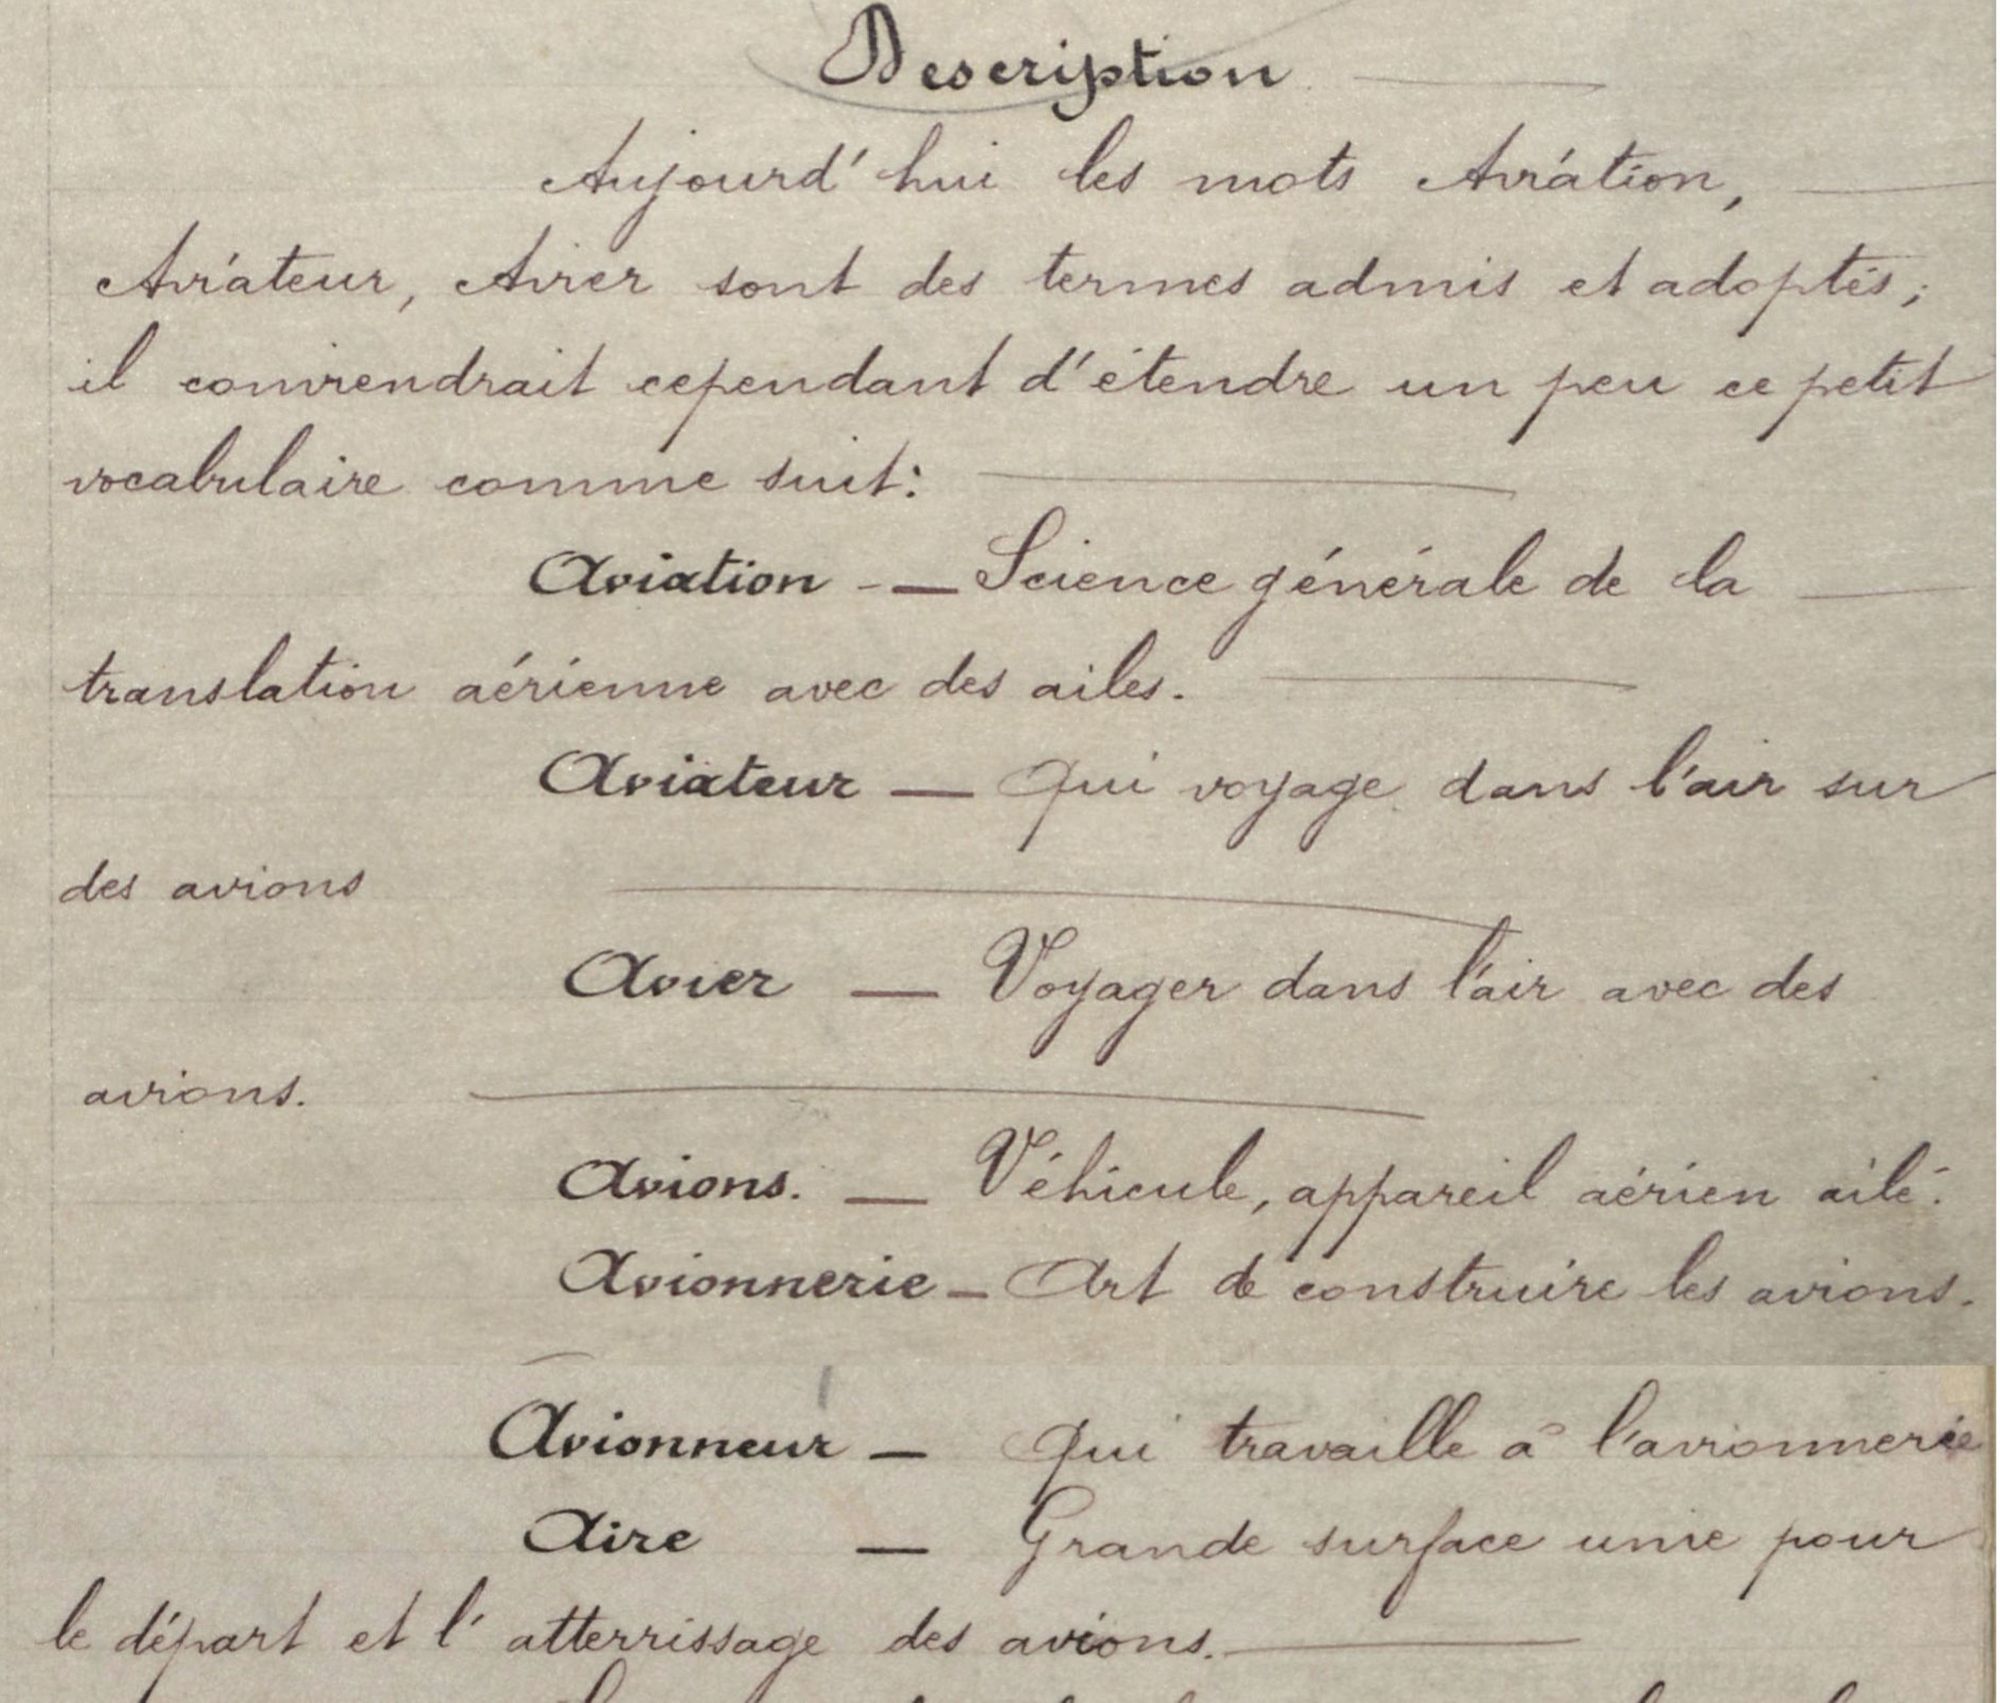 Description
Aujourd'hui les mots Aviation,
Aviateur, Avier sont des termes admis et adoptés;
il conviendrait cependant d'étendre un peu ce petit
vocabulaire comme suit:
Aviation - — Science générale de la
translation aérienne avec des ailes.
Aviateur — Qui voyage dans l'air sur
des avions
Avier — Voyager dans l'air avec des
avions.
Avions. — Véhicule, appareil aérien ailé.
Avionnerie — Art de construire les avions.
Avionneur — Qui travaille à l'avionnerie
Aire — Grande surface unie pour
le départ et l'atterrissage des avions.